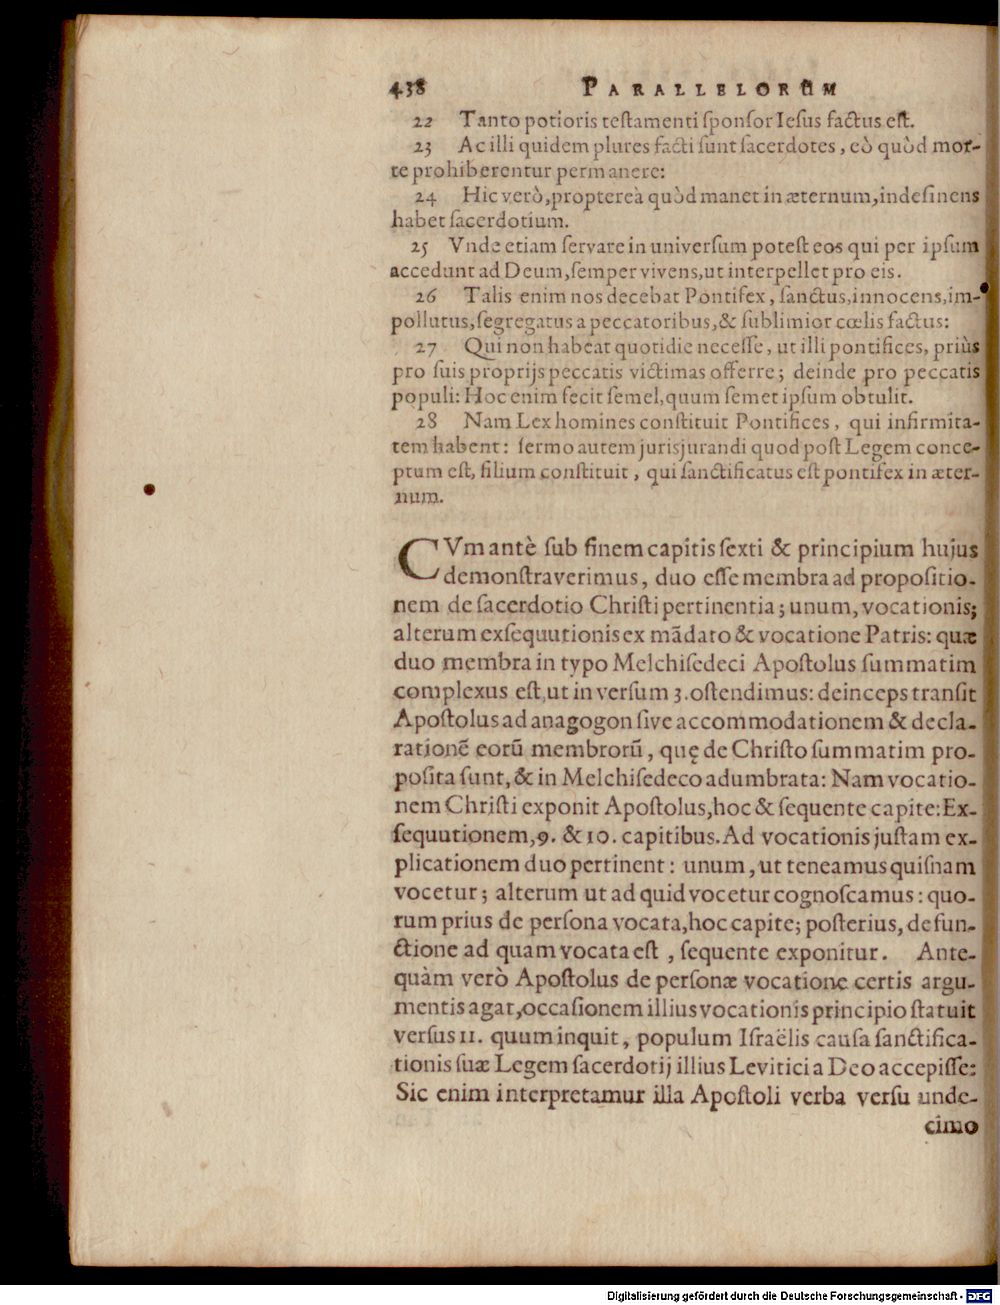 438 PARALLELORUM
22 Tanto potioris teſtamenti ſponſor Ieſus factus eſt.
23 Ac illi quidem plures facti ſunt ſacerdotes, eò quòd mor-
te prohiberentur permanere:
24 Hic verò, propterea quòd manet in æternum, indeſinens
habet ſacerdotium.
25 Vnde etiam ſervare in univerſum poteſt eos qui per ipſum
accedunt ad Deum, ſemper vivens, ut interpellet pro eis.
26 Talis enim nos decebat Pontifex, ſanctus, innocens, im-
pollutus, ſegregatus a peccatoribus, & ſublimior cœlis factus:
27 Qui non habeat quotidie neceſſe, ut illi pontifices, priùs
pro ſuis proprijs peccatis victimas offerre; deinde pro peccatis
populi: Hoc enim fecit ſemel, quum ſemet ipſum obtulit.
28 Nam Lex homines conſtituit Pontifices, qui infirmita-
tem habent: ſermo autem jurisjurandi quod poſt Legem conce-
ptum eſt, filium conſtituit, qui ſanctificatus eſt pontifex in æter-
num.
CVm antè ſub finem capitis ſexti & principium hujus
demonſtraverimus, duo eſſe membra ad propoſitio-
nem de ſacerdotio Chriſti pertinentia; unum, vocationis;
alterum exſequutionis ex mãdato & vocatione Patris: quæ
duo membra in typo Melchiſedeci Apoſtolus ſummatim
complexus eſt, ut in verſum 3. oſtendimus: deinceps tranſit
Apoſtolus ad anagogon ſive accommodationem & decla-
rationẽ eorũ membrorũ, quę de Chriſto ſummatim pro-
poſita ſunt, & in Melchiſedeco adumbrata: Nam vocatio-
nem Chriſti exponit Apoſtolus, hoc & ſequente capite: Ex-
ſequutionem, 9. & 10. capitibus. Ad vocationis juſtam ex-
plicationem duo pertinent: unum, ut teneamus quiſnam
vocetur; alterum ut ad quid vocetur cognoſcamus: quo-
rum prius de perſona vocata, hoc capite; poſterius, de fun-
ctione ad quam vocata eſt, ſequente exponitur. Ante-
quàm verò Apoſtolus de perſonæ vocatione certis argu-
mentis agat, occaſionem illius vocationis principio ſtatuit
verſus 11. quum inquit, populum Iſraëlis cauſa ſanctifica-
tionis ſuæ Legem ſacerdotij illius Levitici a Deo accepiſſe:
Sic enim interpretamur illa Apoſtoli verba verſu unde-
cimo
Digitalisierung gefördert durch die Deutsche Forschungsgemeinschaft - DFG